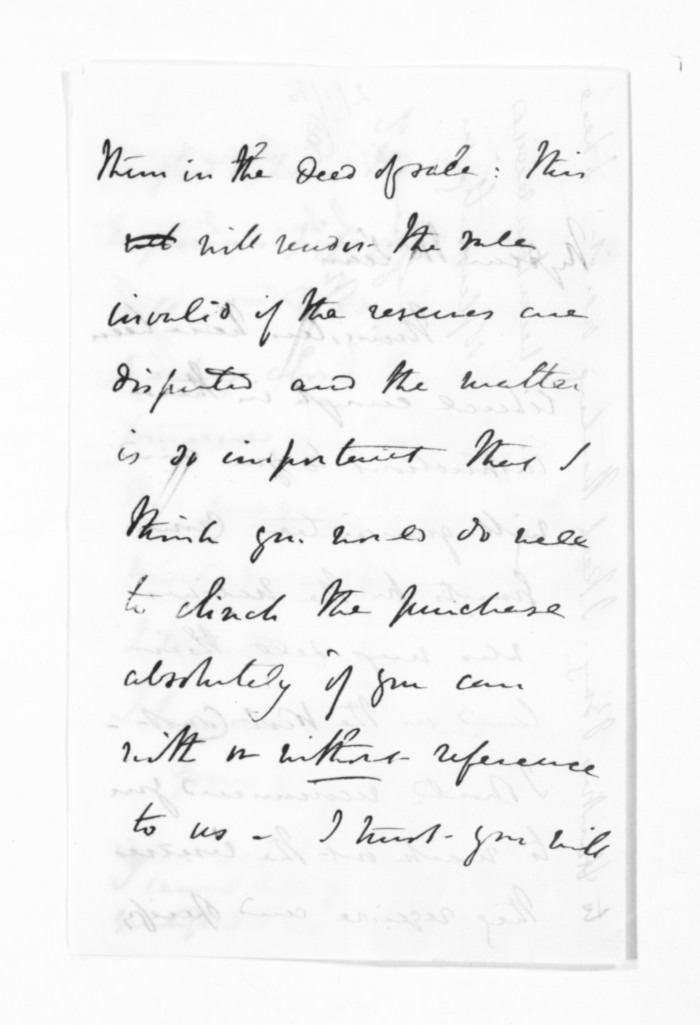 them in the deed of sale: This
will will render the sale
invalid if the reserves are
disputed and the matter
is so important that I
think you would do well
to clinch the purchase
absolutely if you can
with or without reference
to us - I trust you will